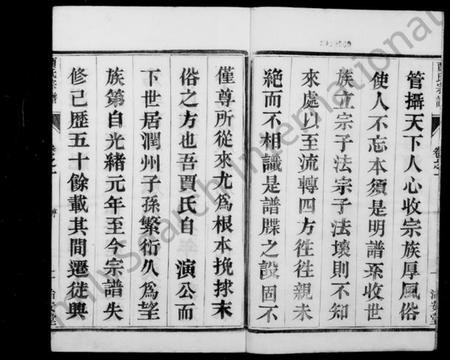 管攝天下人心收宗族厚風俗
使人不忘本須是明譜系收世
族立宗子法宗子法壞則不知
來處以至流轉四方徃徃親未
絶而不相識是譜牒之設固不
僅尊所從來尤為根本挽捄末
俗之方也吾賈氏自　演公而
下世居潤州子孫繁衍久為望
族第自光緒元年至今宗譜失
修已歷五十餘載其間遷徙興
賈氏宗譜
卷之一